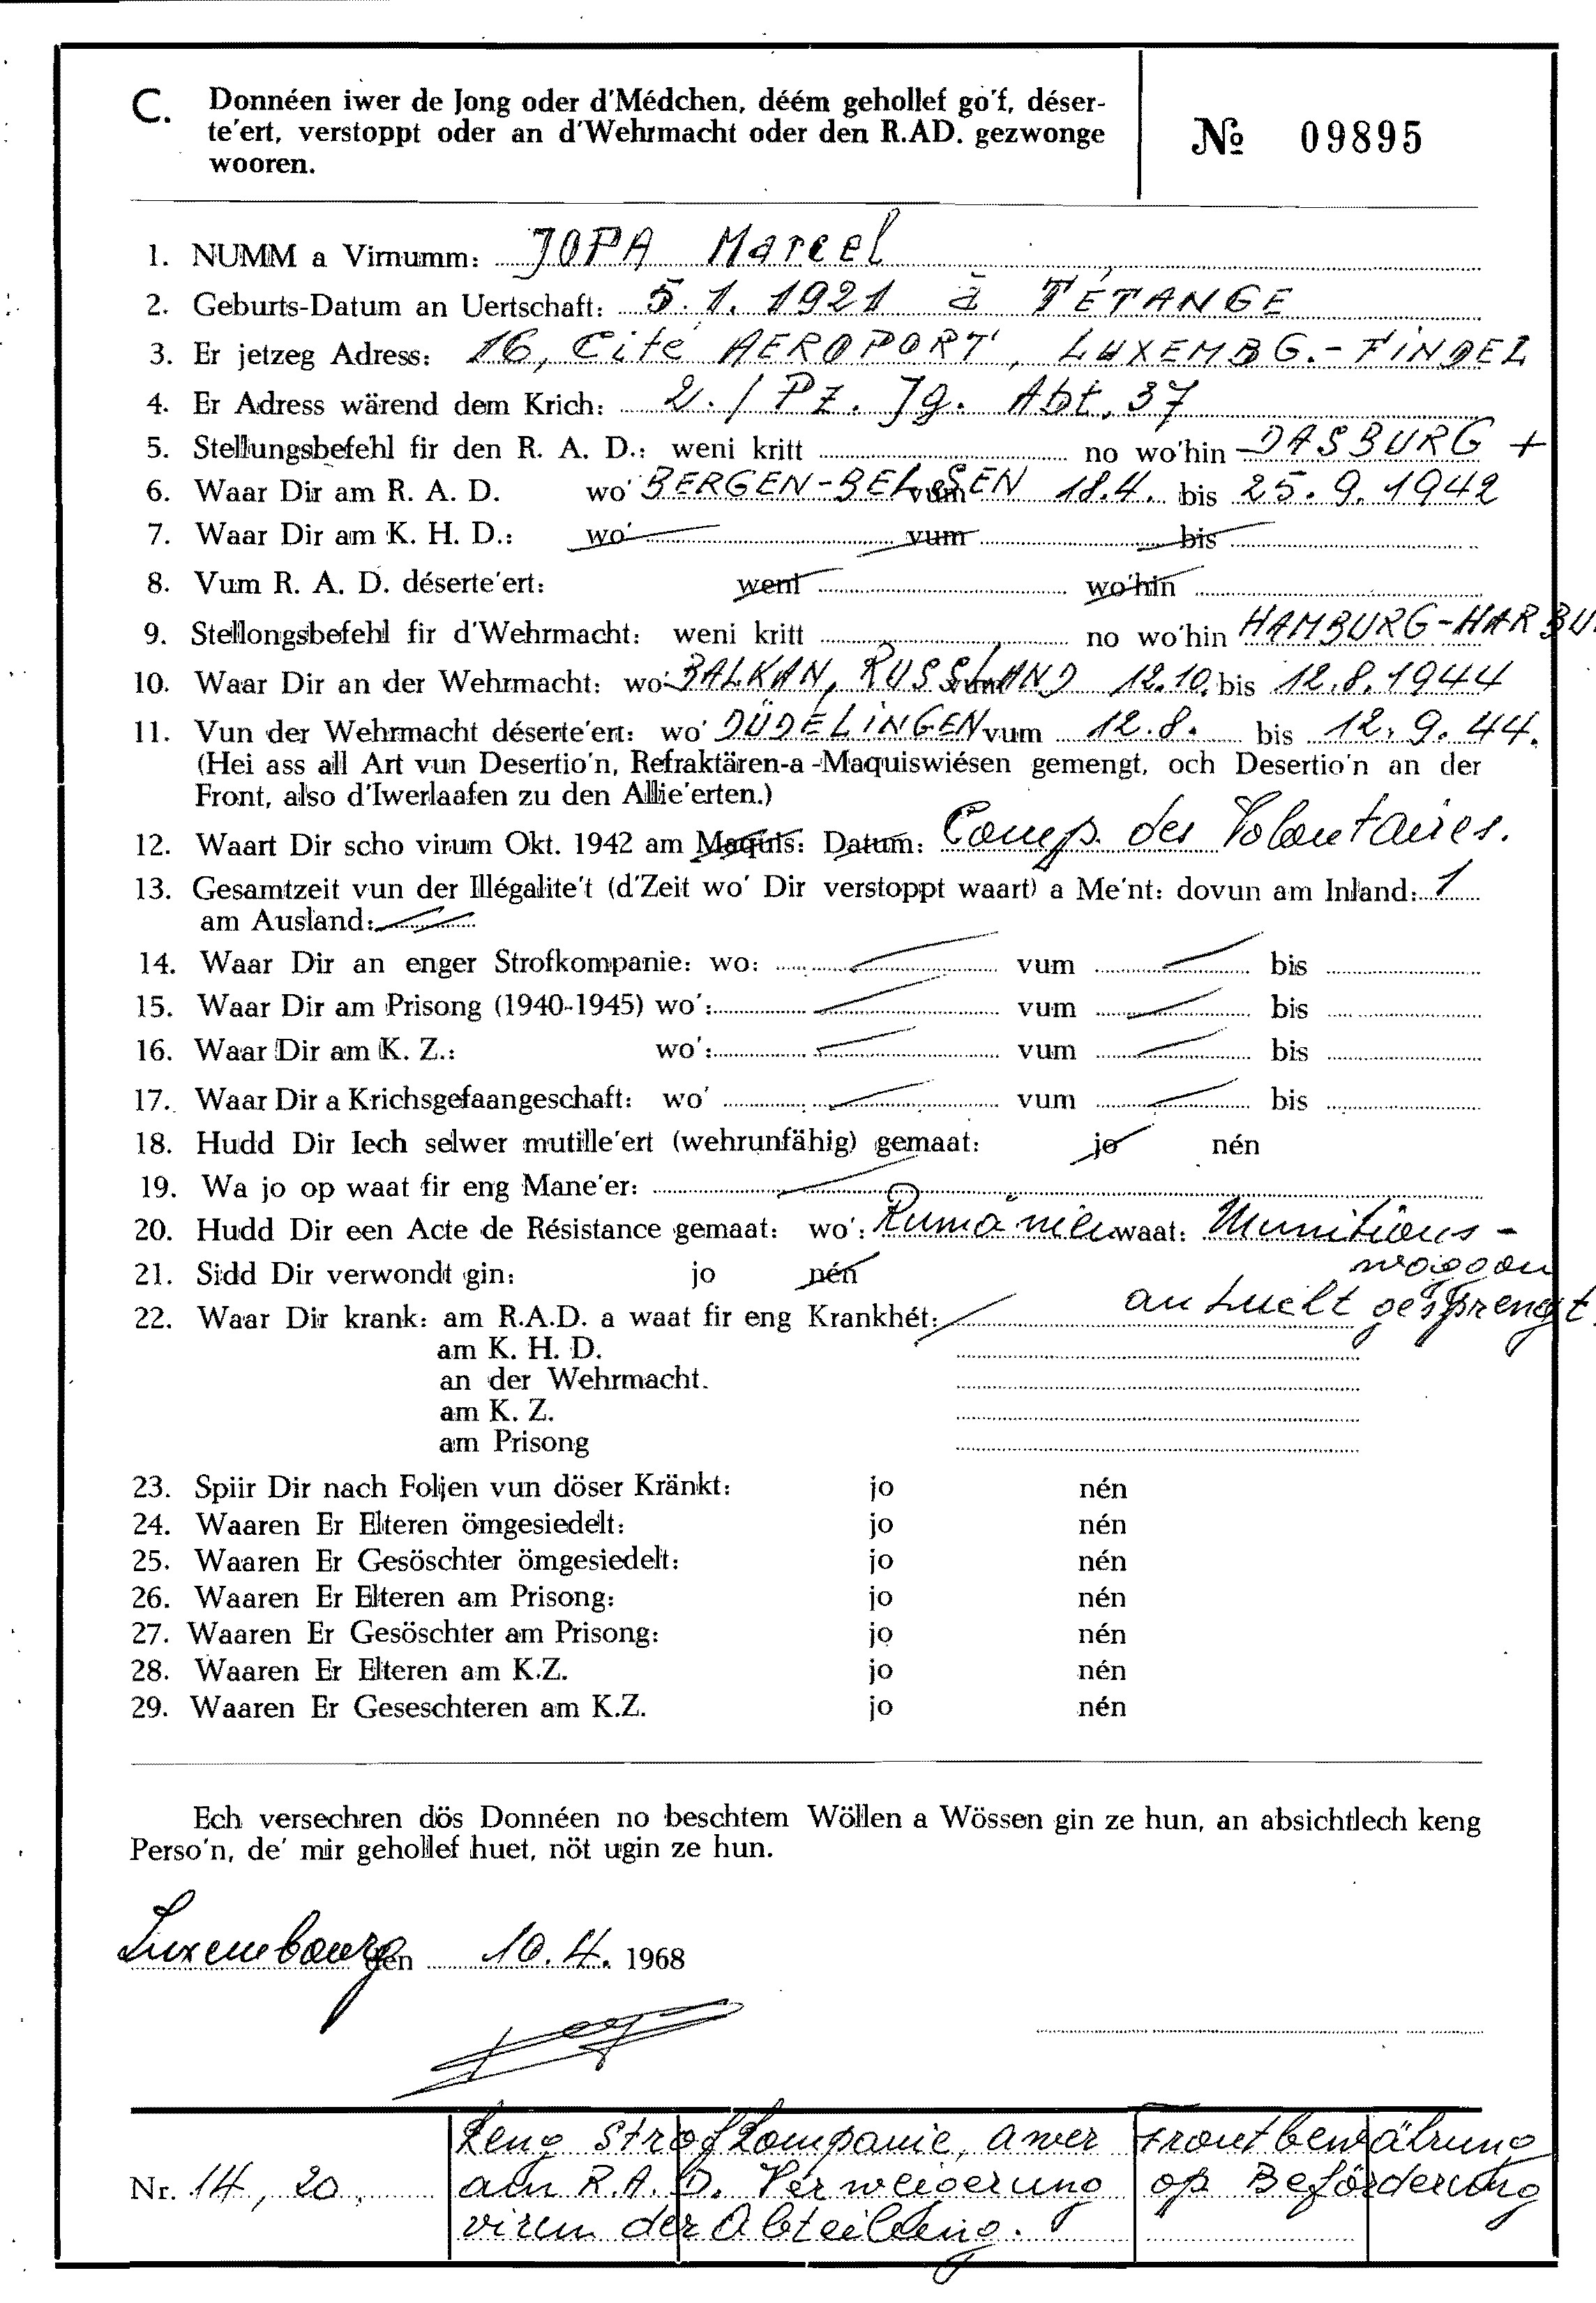 C. Donnéen iwer de Jong oder d'Médchen, déém gehollef go'f, déser-
te'ert, verstoppt oder an d'Wehrmacht oder den R.AD. gezwonge
wooren.
№ 09895
1. NUMM a Virnumm: JOPA Marcel
2. Geburts-Datum an Uertschaft: 5.1.1921 à TÉTANGE
3. Er jetzeg Adress: 16, Cité AEROPORT, LUXEMBG.-FINDEL
4. Er Adress wärend dem Krich: 2./Pz. Jg. Abt. 37
5. Stellungsbefehl fir den R. A. D.: weni kritt no wo'hin DASBURG +
6. Waar Dir am R. A. D. wo' BERGEN-BELSEN vum 18.4. bis 25.9.1942
7. Waar Dir am K. H. D.: wo' vum bis
8. Vum R. A. D. déserte'ert: weni wo'hin
9. Stellongsbefehl fir d'Wehrmacht: weni kritt no wo'hin HAMBURG-HARBU
10. Waar Dir an der Wehrmacht: wo' BALKAN, RUSSLAND vum 12.10. bis 12.8.1944
11. Vun der Wehrmacht déserte'ert: wo' DÜDELINGEN vum 12.8. bis 12.9.44.
(Hei ass all Art vun Desertio'n, Refraktären-a-Maquiswiésen gemengt, och Desertio'n an der
Front, also d'Iwerlaafen zu den Allie'erten.)
12. Waart Dir scho virum Okt. 1942 am Maquis: Datum: Comp. des Volontaires.
13. Gesamtzeit vun der Illégalite't (d'Zeit wo' Dir verstoppt waart) a Me'nt: dovun am Inland: 1
am Ausland:
14. Waar Dir an enger Strofkompanie: wo: vum bis
15. Waar Dir am Prisong (1940-1945) wo': vum bis
16. Waar Dir am K. Z.: wo': vum bis
17. Waar Dir a Krichsgefaangeschaft: wo' vum bis
18. Hudd Dir Iech selwer mutille'ert (wehrunfähig) gemaat: jo nén
19. Wa jo op waat fir eng Mane'er:
20. Hudd Dir een Acte de Résistance gemaat: wo': Rumänien waat: Munitions-
waggon
21. Sidd Dir verwondt gin: jo nén
an Lucht gesprengt.
22. Waar Dir krank: am R.A.D. a waat fir eng Krankhét:
am K. H. D.
an der Wehrmacht.
am K. Z.
am Prisong
23. Spiir Dir nach Foljen vun döser Kränkt: jo nén
24. Waaren Er Elteren ömgesiedelt: jo nén
25. Waaren Er Gesöschter ömgesiedelt: jo nén
26. Waaren Er Elteren am Prisong: jo nén
27. Waaren Er Gesöschter am Prisong: jo nén
28. Waaren Er Elteren am K.Z. jo nén
29. Waaren Er Geseschteren am K.Z. jo nén
Ech versechren dös Donnéen no beschtem Wöllen a Wössen gin ze hun, an absichtlech keng
Perso'n, de' mir gehollef huet, nöt ugin ze hun.
Luxembourg den 10.4. 1968
Keng Strofkompanie, awer Frontbewährung
Nr. 14, 20. am R.A.D. Verweigerung op Beförderung
virun der Abteilung.